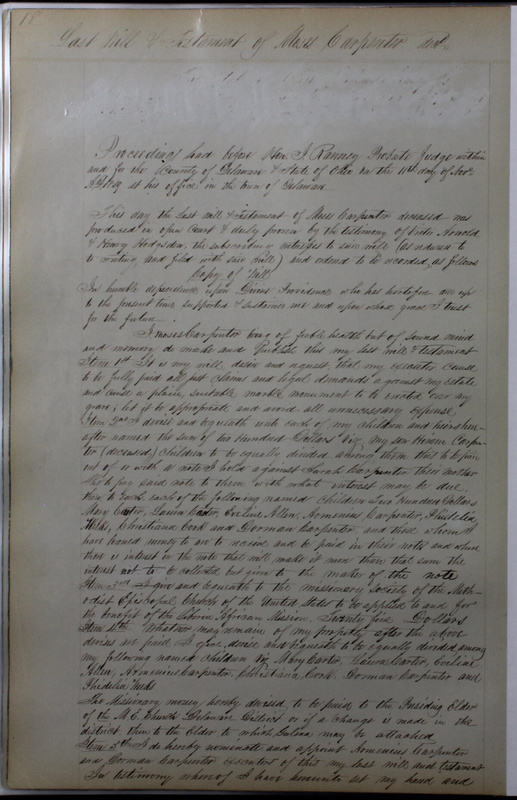 18
Last Will & Testament of Moses Carpenter decd.
Proceedings had before Hon. T. Ranney Probate Judge within
and for the County of Delaware & State of Ohio on the day of Nov.
at his office in the town of Delaware
This day the Last will & Testament of Moses Carpenter deceased was
produced in open Court & duly proven by the testimony of Arnold
& Henry Hodgsden, the subscribing witnesses to said will (as reduced to
to writing and filed with said will) and ordered to be recorded, as follows
Copy of Will
In humble dependence upon Divine Providence who has heretofore and up
to the present time supported & sustained me and upon whose grace I trust
for the future.
I Moses Carpenter being of feeble health but of sound mind
and memory do make and Publish this my last will & testament
Item 1st It is my will, desire and request that my executor cause
to be fully paid all just claims and legal demands against my estate
and cause a plain, suitable marble monument to be erected over my
grave; let it be appropriate and avoid all unnecessary expense,
Item 2nd I devise and bequeath unto each of my children and heirs here-
after named the sum of two hundred Dollars Viz, my son Hiram Carpen-
ter (deceased) children to be equally divided among them that to be paid
out of a note I hold against Sarah Carpenter their mother
she to pay said note to them with what interest may be due,
then to each of the following named children Two Hundred Dollars
Mary Carter, Laura Carter, Eveline Allen, Armenius Carpenter, Phidelia
Weeks, Christiana Cook and Dorman Carpenter and those whom I
have loaned money to are to receive and be paid in their notes and where
there is interest on the note that will make it more than that sum the
interest not to be collected but given to the maker of the note
Item 3rd I give and bequeath to the missionary society of the Meth-
odist Episcopal Church of the United States to be applied to and for
the benefit of the Liberia African Mission, Twenty five Dollars
Item 4th Whatever may remain of my property after the above
devises are paid I give, devise and bequeath to be equally divided among
my following named children Viz Mary Carter, Laura Carter, Eveline
Allen, Armenius Carpenter, Christiana Cook Dorman Carpenter and
Phidelia Weeks
The Missionary money hereby devised to be paid to the Presiding Elder
of the M. E. Church Delaware District or if a change is made in the
district then to the Elder to which may be attached
Item 5th I do hereby nominate and appoint Armenius Carpenter
and Dorman Carpenter executors of this my last will and testament
In testimony whereof I have hereunto set my hand and